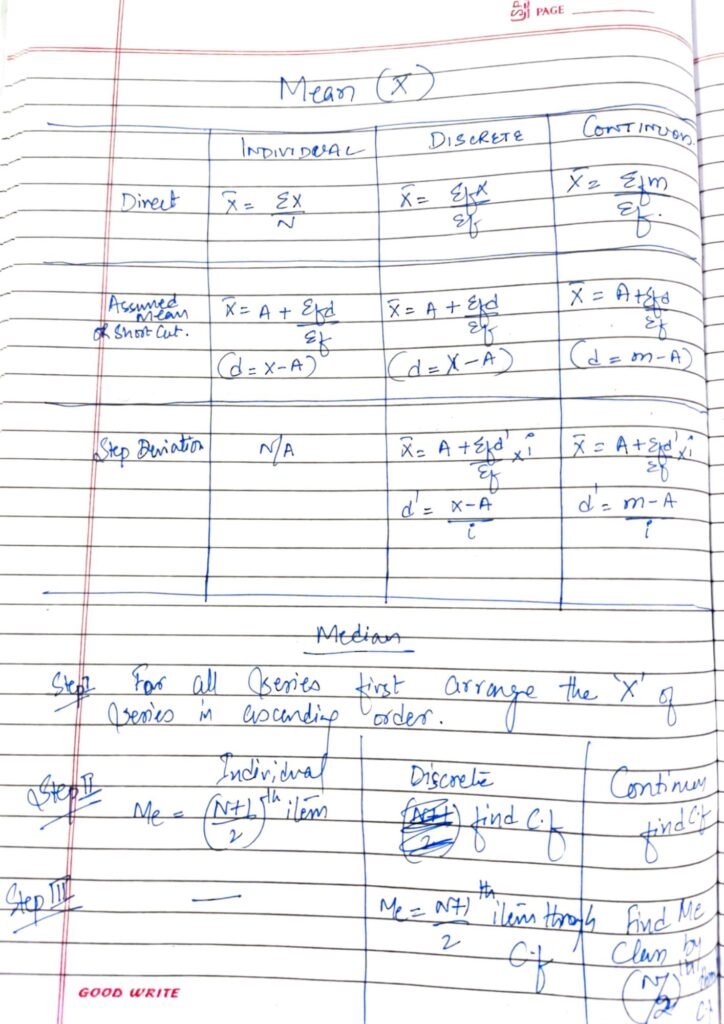 PAGE
Mean (X̄)
INDIVIDUAL DISCRETE CONTINUOUS
Direct X̄ = ΣX/N X̄ = ΣfX/Σf X̄ = Σfm/Σf.
Assumed Mean or Short Cut. X̄ = A + Σfd/Σf X̄ = A + Σfd/Σf X̄ = A + Σfd/Σf
(d = X-A) (d = X-A) (d = m-A)
Step Deviation N/A X̄ = A + Σfd'/Σf × i X̄ = A + Σfd'/Σf × i
d' = X-A/i d' = m-A/i
Median
Step I For all series first arrange the 'X' of
series in ascending order.
Individual Discrete
Step II Me = (N+1/2)th item find C.f find C.f
Step III — Me = N+1/2 th item through C.f Find Me
Class by
(N/2)th item
C.f
GOOD WRITE